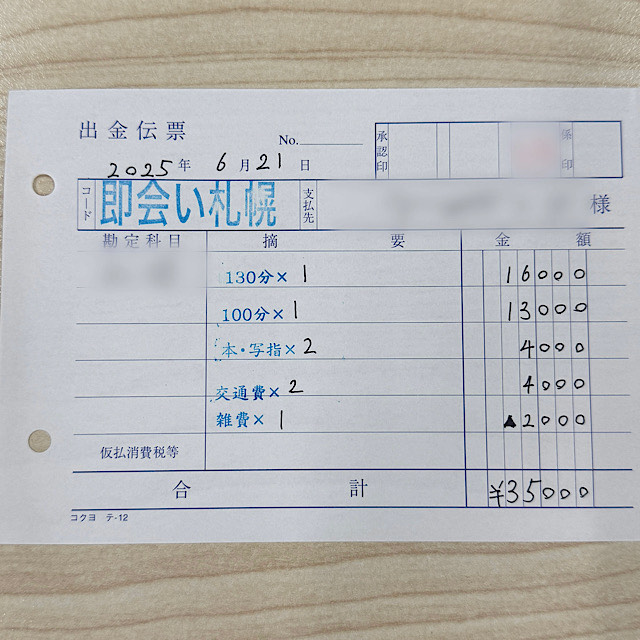 出金伝票
No.
承認印
係印
2025年 6月21日
コード 即会い札幌 支払先 様
勘定科目 摘要 金額
130分×1 16000
100分×1 13000
本・写指×2 4000
交通費×2 4000
雑費×1 ▲2000
仮払消費税等
合計 ¥35000
コクヨ テ-12